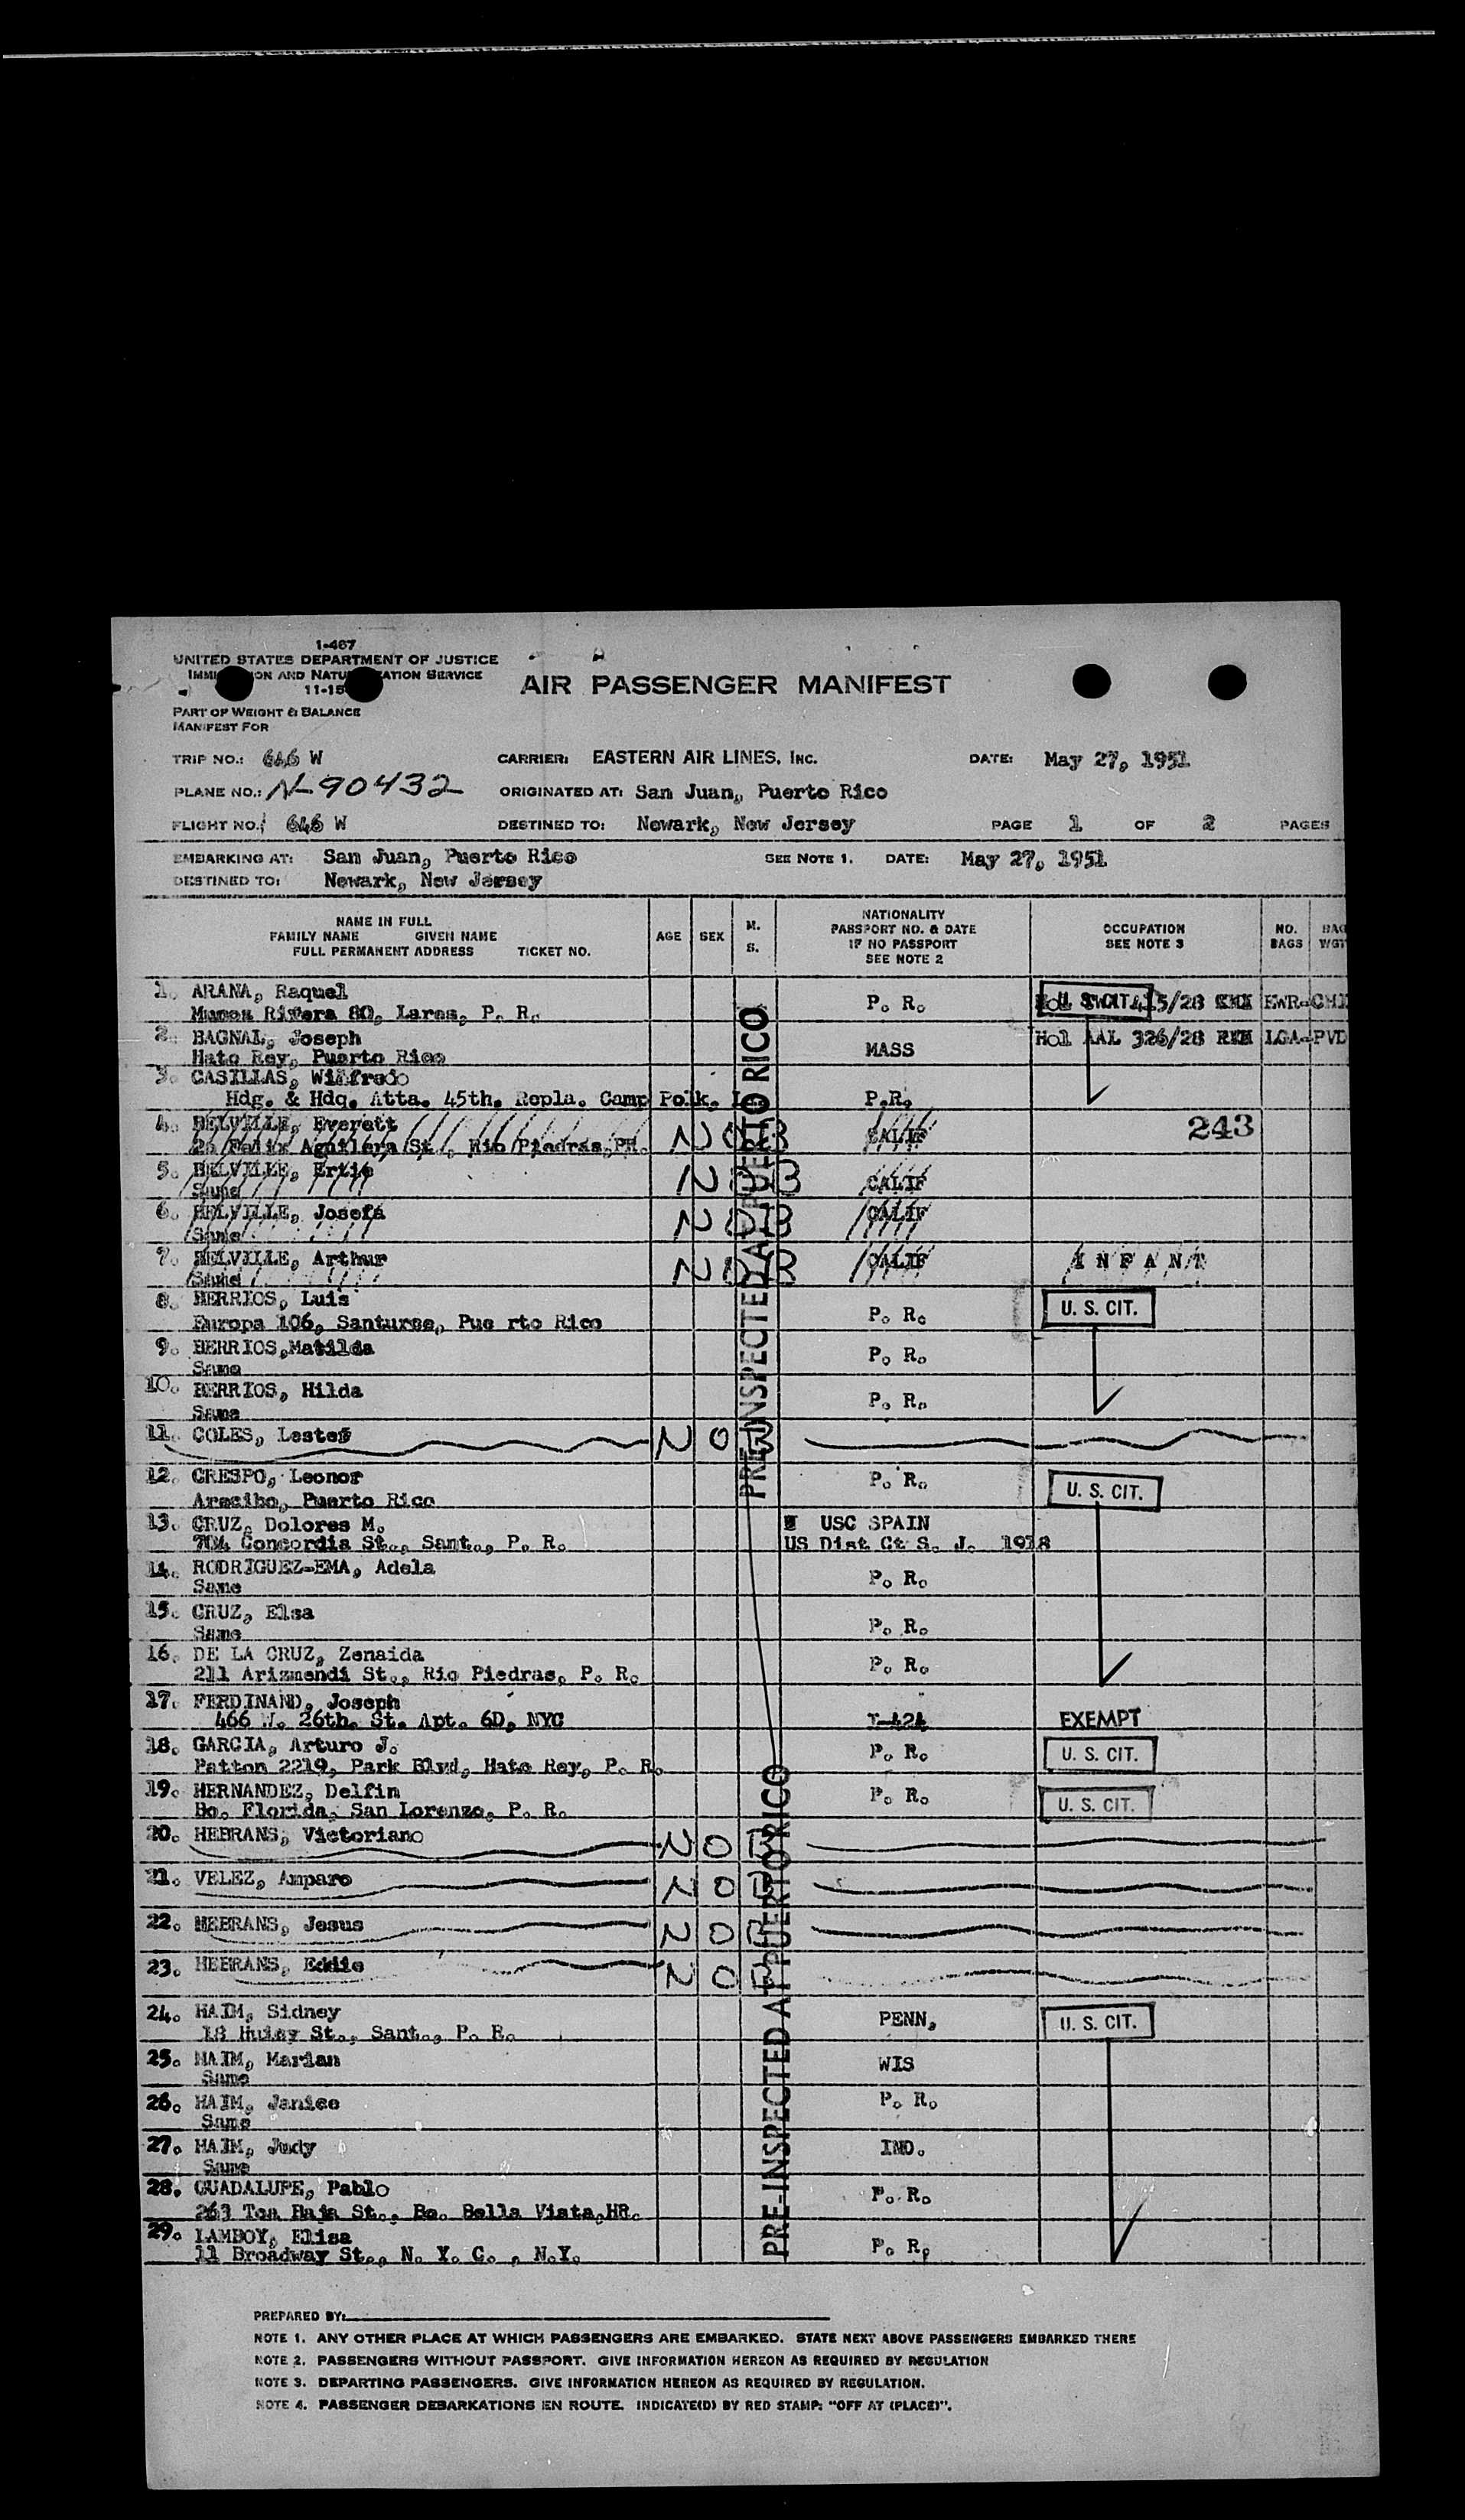 1-467
UNITED STATES DEPARTMENT OF JUSTICE
IMMI ON AND NATU ATION SERVICE
11-15
AIR PASSENGER MANIFEST
PART OF WEIGHT & BALANCE
MANIFEST FOR
TRIP NO.: 646 W CARRIER: EASTERN AIR LINES, INC. DATE: May 27, 1951
PLANE NO.: N-90432 ORIGINATED AT: San Juan, Puerto Rico
FLIGHT NO.: 646 W DESTINED TO: Newark, New Jersey PAGE 1 OF 2 PAGES
EMBARKING AT: San Juan, Puerto Rico SEE NOTE 1. DATE: May 27, 1951
DESTINED TO: Newark, New Jersey
NAME IN FULL
FAMILY NAME GIVEN NAME
FULL PERMANENT ADDRESS TICKET NO.
AGE SEX M. S.
NATIONALITY
PASSPORT NO. & DATE
IF NO PASSPORT
SEE NOTE 2
OCCUPATION
SEE NOTE 3
NO. BAGS BAG WGT
1. ARANA, Raquel
Munoz Rivera 80, Lares, P. R. P. R. U. S. CIT. 415/28 EWR-CHI
2. BAGNAL, Joseph Hol AAL 326/28 LGA-PVD
Hato Rey, Puerto Rico MASS
3. CASILLAS, Wilfredo
Hdg. & Hdq. Atta. 45th. Repla. Camp Polk, P.R.
4. BELVILLE, Everett 243
Felix Aguilera St., Rio Piedras, PR. NOB CALIF
5. BELVILLE, NOB
Same CALIF
6. BELVILLE, Josefa NOB CALIF
Same
7. BELVILLE, Arthur NOB CALIF INFANT
Same
8. BERRIOS, Luis U. S. CIT.
Europa 106, Santurse, Pue rto Rico P. R.
9. BERRIOS,Matilda P. R.
Same
10. BERRIOS, Hilda P. R.
Same
11. COLES, Lester NOB
12. CRESPO, Leonor P. R. U. S. CIT.
Arecibo, Puerto Rico
13. CRUZ, Dolores M. USC SPAIN
704 Concordia St., Sant., P. R. US Dist Ct S. J. 1918
14. RODRIGUEZ-EMA, Adela P. R.
Same
15. CRUZ, Elsa P. R.
Same
16. DE LA CRUZ, Zenaida P. R.
211 Arizmendi St., Rio Piedras, P. R.
17. FERDINAND, Joseph
466 W. 26th. St. Apt. 6D, NYC EXEMPT
18. GARCIA, Arturo J. P. R. U. S. CIT.
Patton 2219, Park Blvd, Hato Rey, P. R.
19. HERNANDEZ, Delfin P. R. U. S. CIT.
Bo. Florida, San Lorenzo, P. R.
20. HEBRANS, Victoriano NOB
21. VELEZ, Amparo NOB
22. HEBRANS, Jesus NOB
23. HEBRANS, Eddie NOB
24. HAIM, Sidney PENN, U. S. CIT.
18 St., Sant., P. R.
25. HAIM, Marian WIS
Same
26. HAIM, Janice P. R.
Same
27. HAIM, Judy IND.
Same
28. GUADALUPE, Pablo P. R.
263 Toa Baja St., Bo. Bella Vista,HR.
29. LAMBOY, Elisa P. R.
11 Broadway St., N. Y. C. , N.Y.
PRE-INSPECTED AT PUERTO RICO
PRE-INSPECTED AT PUERTO RICO
PREPARED BY:
NOTE 1. ANY OTHER PLACE AT WHICH PASSENGERS ARE EMBARKED. STATE NEXT ABOVE PASSENGERS EMBARKED THERE
NOTE 2. PASSENGERS WITHOUT PASSPORT. GIVE INFORMATION HEREON AS REQUIRED BY REGULATION
NOTE 3. DEPARTING PASSENGERS. GIVE INFORMATION HEREON AS REQUIRED BY REGULATION.
NOTE 4. PASSENGER DEBARKATIONS EN ROUTE. INDICATE(D) BY RED STAMP: "OFF AT (PLACE)".